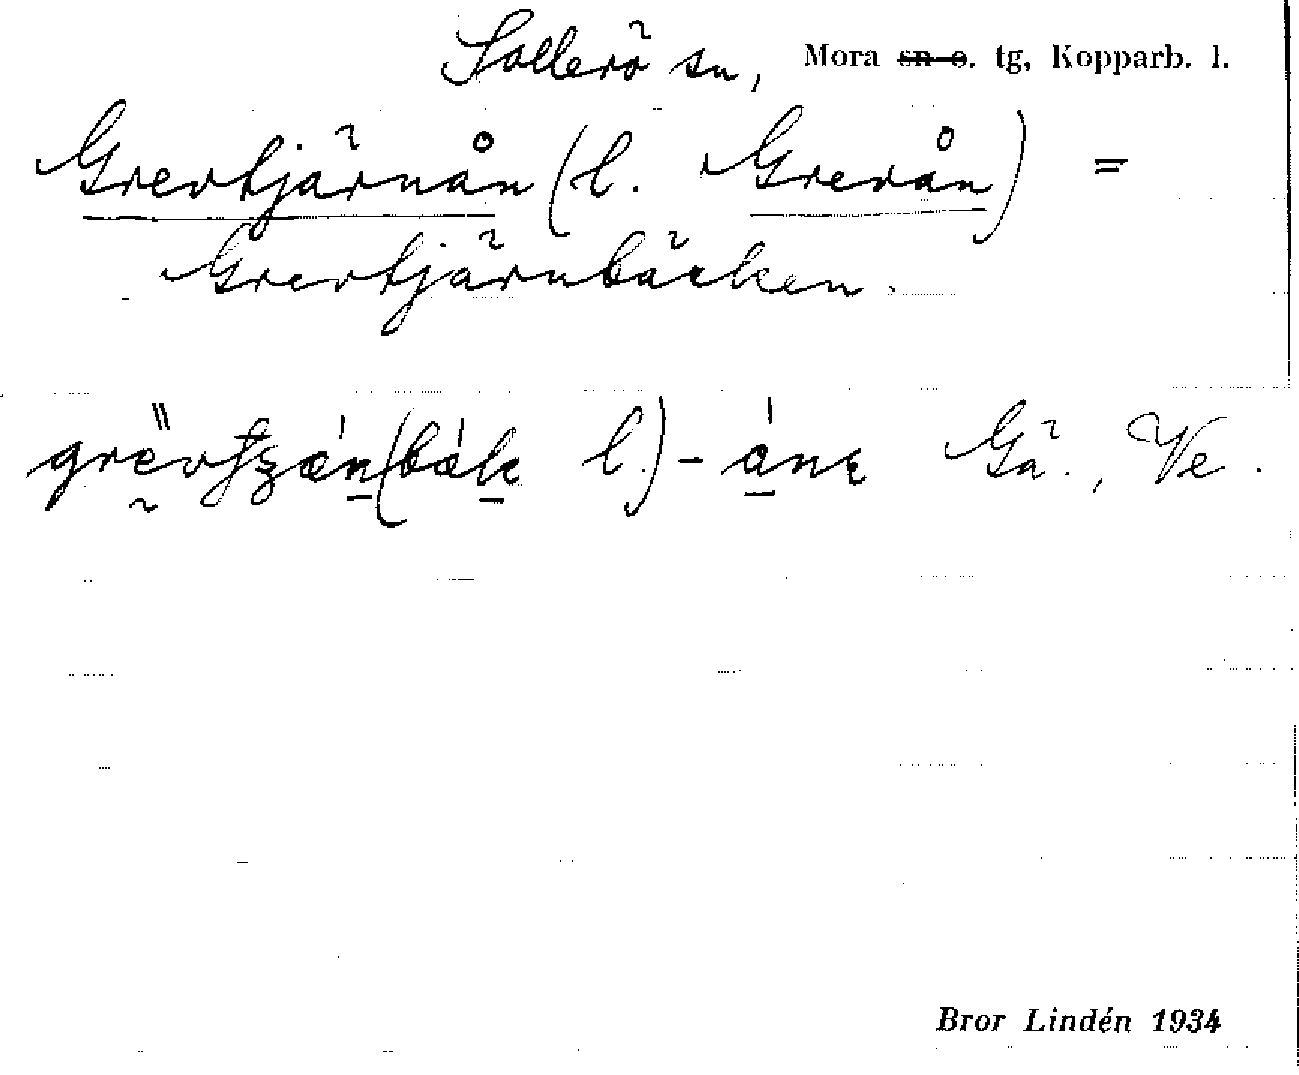 Sollerö sn, Mora sn o. tg, Kopparb. l.
Grevtjärnån (l. Grevån) =
Grevtjärnbäcken.
l.) - Gä., Ve.
Bror Lindén 1934